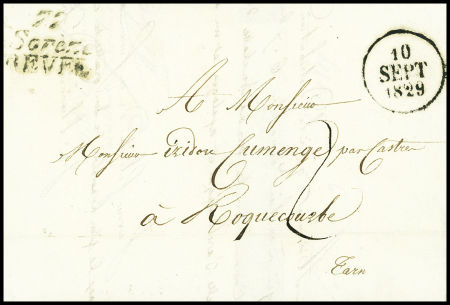 77
Sorèze
REVEL
10
SEPT
1829
A Monsieur
Monsieur isidore Cumenge par Castres
à Roquecourbe
Tarn